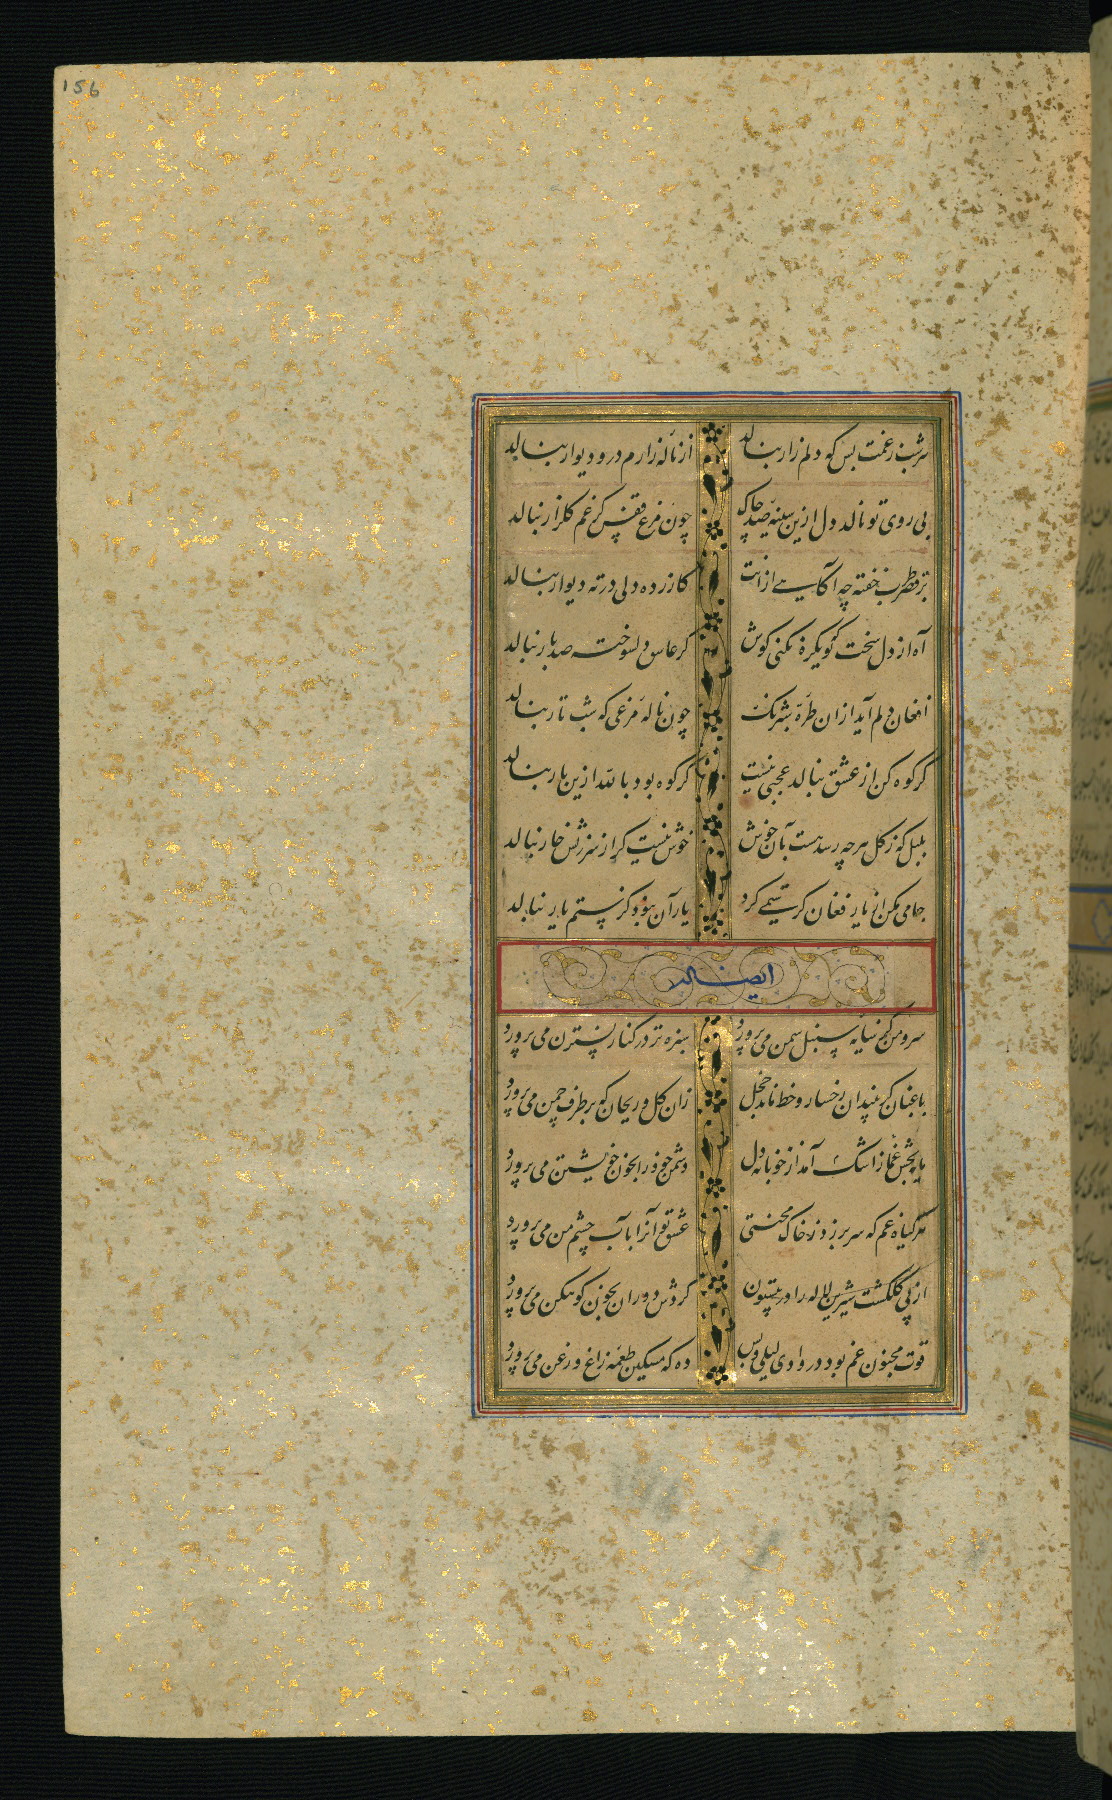 156
هر شب ز غمت بس که دلم زار بنالد از ناله زارم در و دیوار بنالد
بی روی تو نالد دل ازین سینه صد چاک چون مرغ قفس کز غم گلزار بنالد
خفته چه آگاهی از آنت کازرده دلی در ته دیوار بنالد
آه از دل سخت تو که یکره نکنی گوش گر عاشق دلسوخته صد بار بنالد
افغان دلم آید از ان طره شبرنگ چون ناله مرغی که شب تار بنالد
گر کوه کن از عشق بنالد عجبی نیست گر کوه بود بالله ازین بار بنالد
بلبل که ز گل هر چه رسد هست بآن خوش خوش نیست کز سرزنش خار بنالد
جامی مکن از یار فغان گر ستمی کرد یار آن نبود کز ستم یار بنالد
ایضا له
سرو من کج سنبل سمن می پرورد سبزه تر در کنار نسترن می پرورد
باغبان گر بیند آن رخسار و خط ماند خجل زان گل و ریحان که بر طرف چمن می پرورد
غماز اشک آمد از خونابه دل دشمن خود را بخون خویشتن می پرورد
هر گیاه غم که سر بر زد ز خاک محنتی عشق تو آنرا بآب چشم من می پرورد
از پی گلگشت شیرین لاله را در بیستون گردش دوران بخون کوهکن می پرورد
قوت مجنون غم بود در وادی لیلی وه که مسکین طعمه زاغ و زغن می پرورد